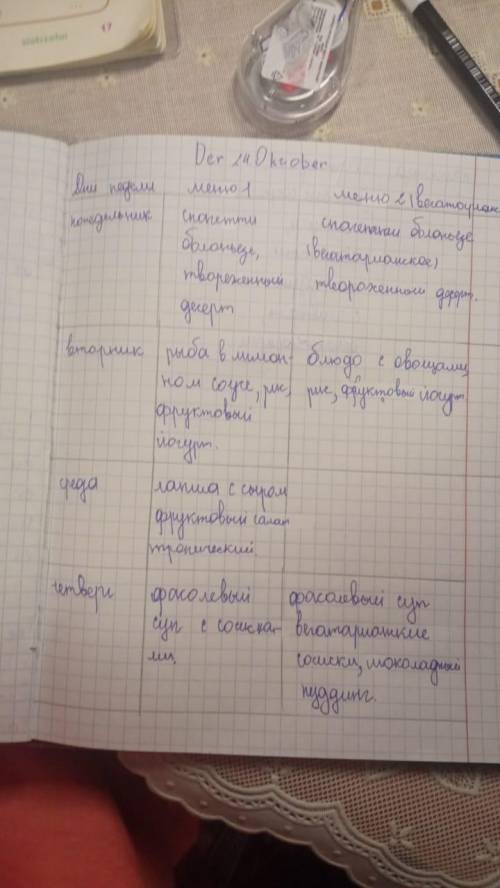 17
Der 24 Oktober
Дни недели меню 1 меню 2 (вегатариан
понедельник спагетти спагетти болоньезе
болоньезе, (вегатарианское)
твореженный твороженный десерт.
десерт
вторник рыба в лимон- блюдо с овощами,
ном соусе, рис, рис, фруктовый йогурт
фруктовый
йогурт.
среда лапша с сыром
фруктовый салат
тропический.
четверг фасолевый фасолевый суп
суп с сосиска- вегатарианские
ми, сосиски, шоколадный
пуддинг.